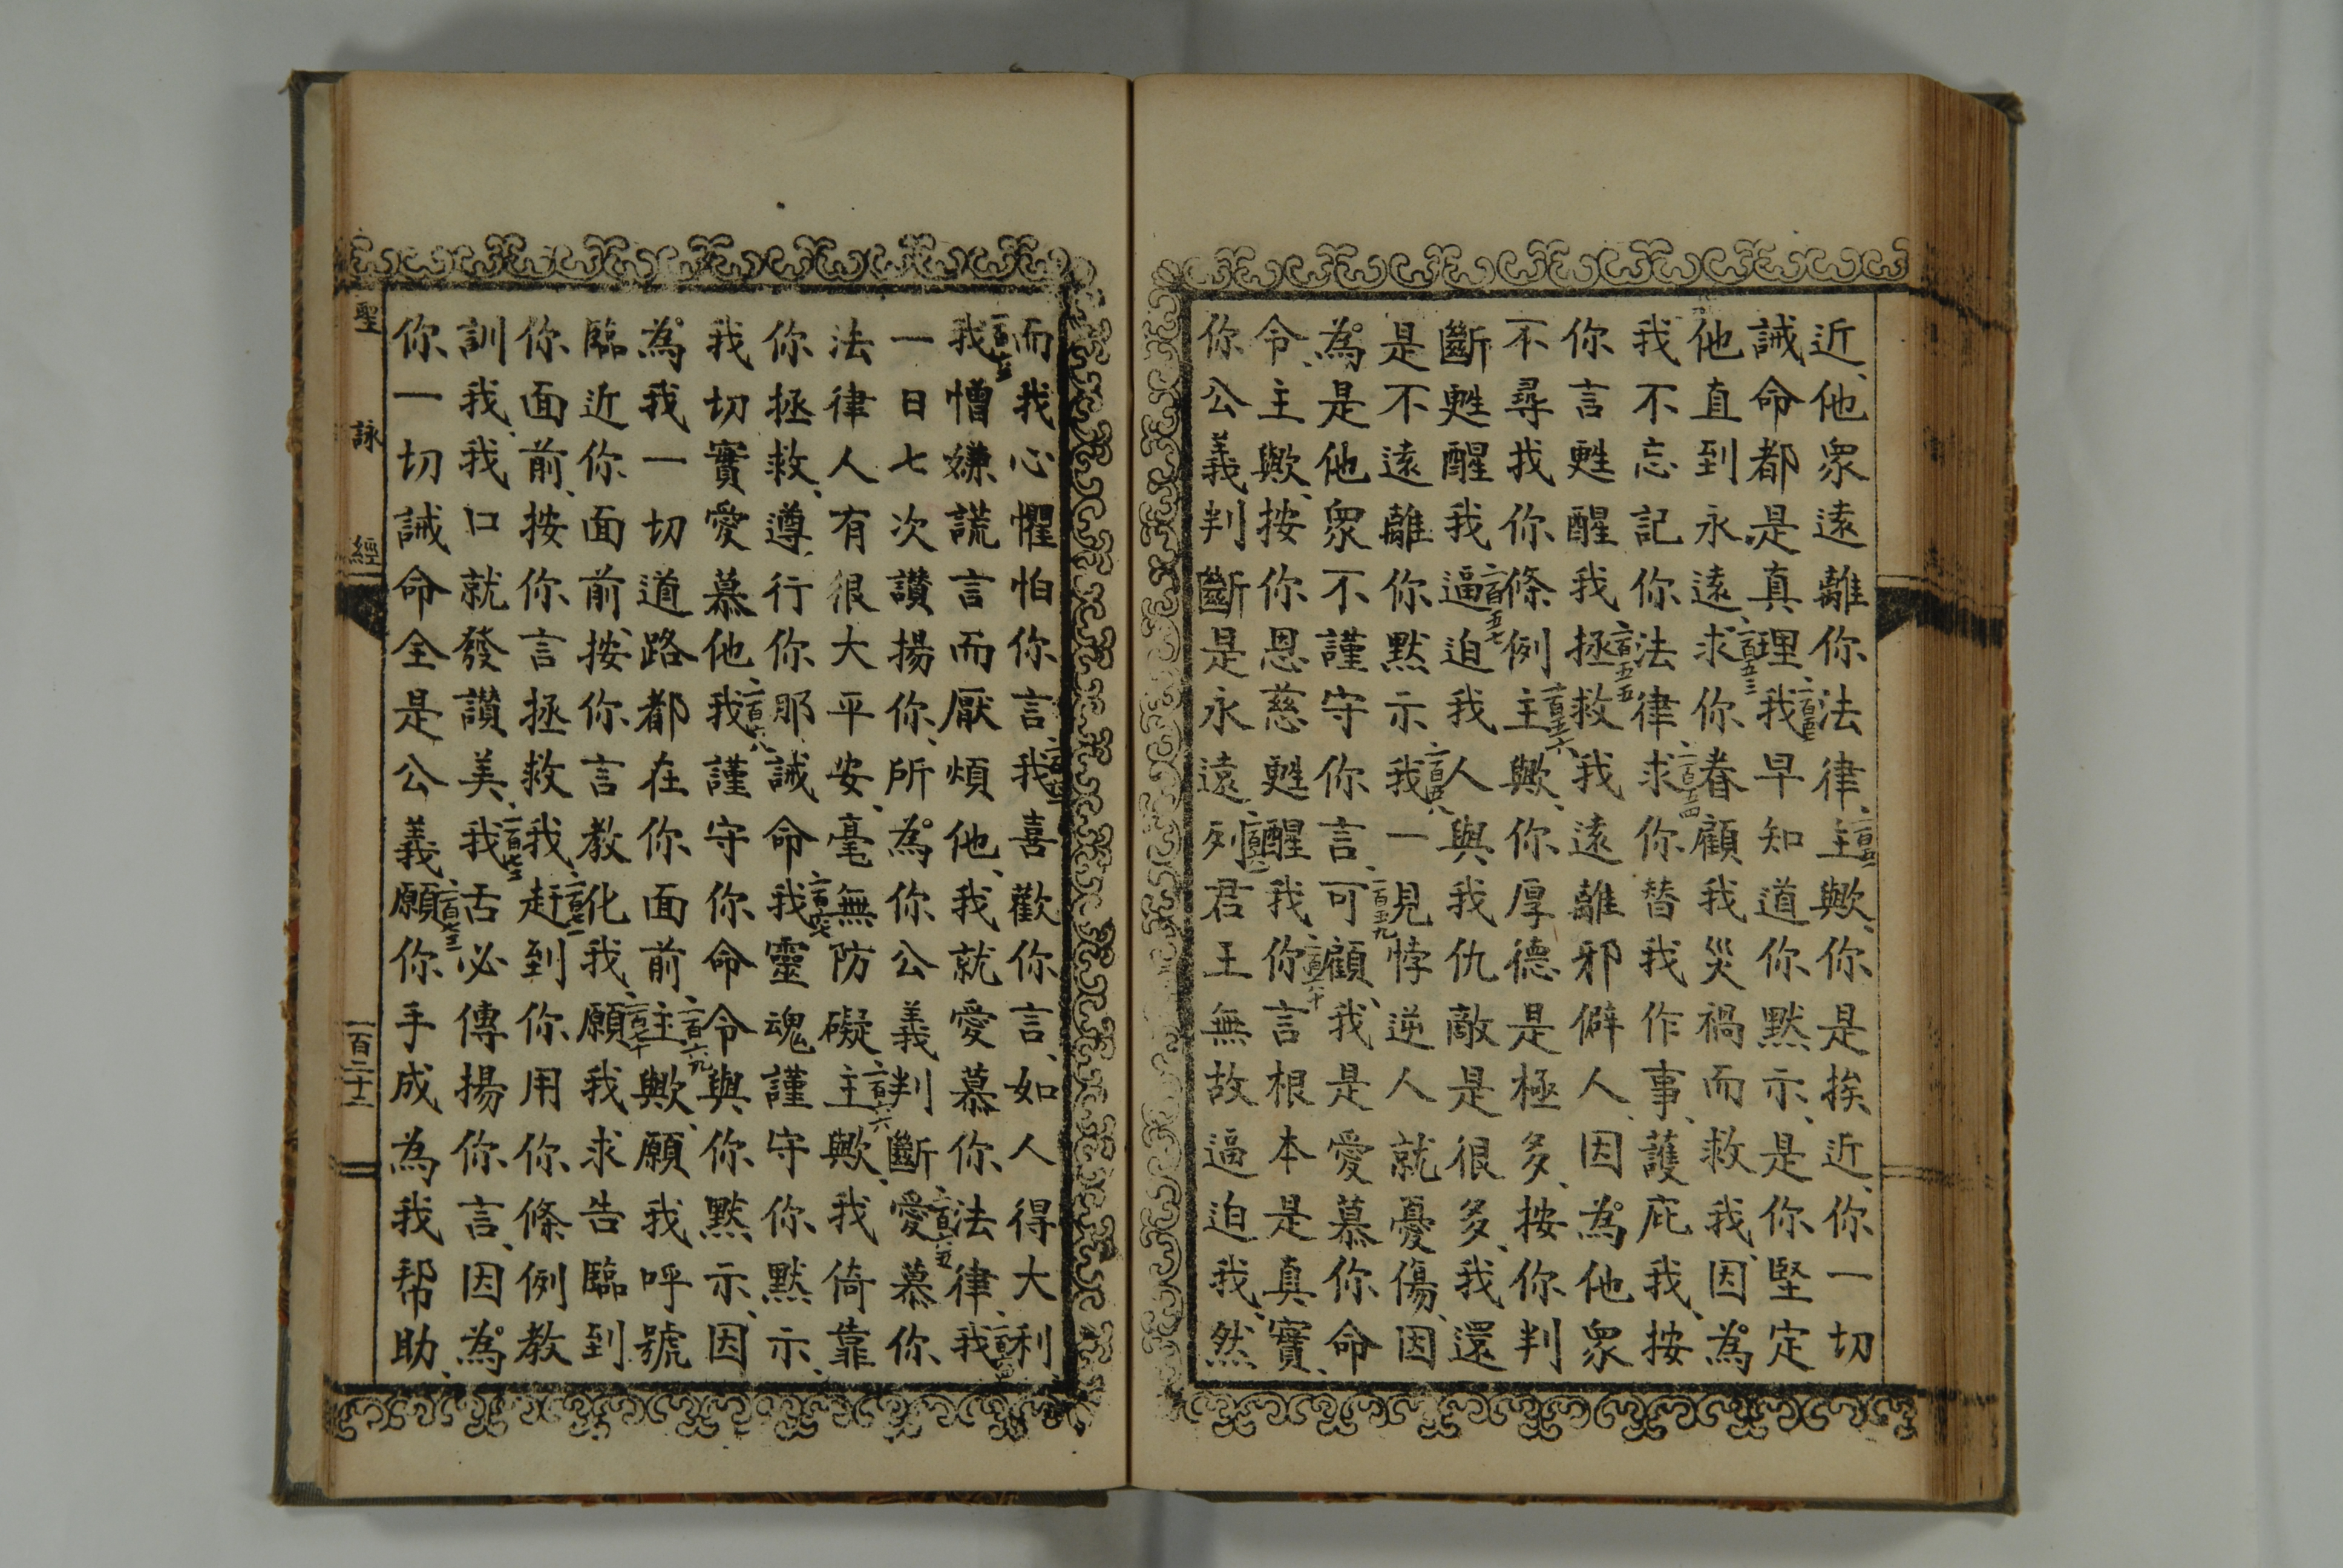 近、他眾遠離你法律、一百五一主歟、你是挨近、你一切
誡命都是真理、一百五二我早知道你默示、是你堅定
他直到永遠、一百五三求你眷顧我災禍而救我、因為
我不忘記你法律、一百五四求你替我作事、護庇我、按
你言甦醒我、一百五五拯救我遠離邪僻人、因為他眾
不尋找你條例、一百五六主歟、你厚德是極多、按你判
斷甦醒我、一百五七逼迫我人與我仇敵是很多、我還
是不遠離你默示、一百五八我一見悖逆人就憂傷、因
為是他眾不謹守你言、一百五九可顧我是愛慕你命
令、主歟、按你恩慈甦醒我、一百六十你言根本是真實、
你公義判斷是永遠、一百六一列君王無故逼迫我、然
而我心懼怕你言、一百六二我喜歡你言、如人得大利
一百六三我憎嫌謊言而厭煩他、我就愛慕你法律、一百六四我
一日七次讚揚你、所為你公義判斷、一百六五愛慕你
法律人有很大平安、毫無防礙、一百六六主歟、我倚靠
你拯救、遵行你那誡命、一百六七我靈魂謹守你默示、
我切實愛慕他、一百六八我謹守你命令與你默示、因
為我一切道路都在你面前、一百六九主歟、願我呼號
臨近你面前、按你言教化我、一百七十願我求告臨到
你面前、按你言拯救我、一百七一赶到你用你條例教
訓我、我口就發讚美、一百七二我舌必傳揚你言、因為
你一切誡命全是公義、一百七三願你手成為我帮助、
聖詠經